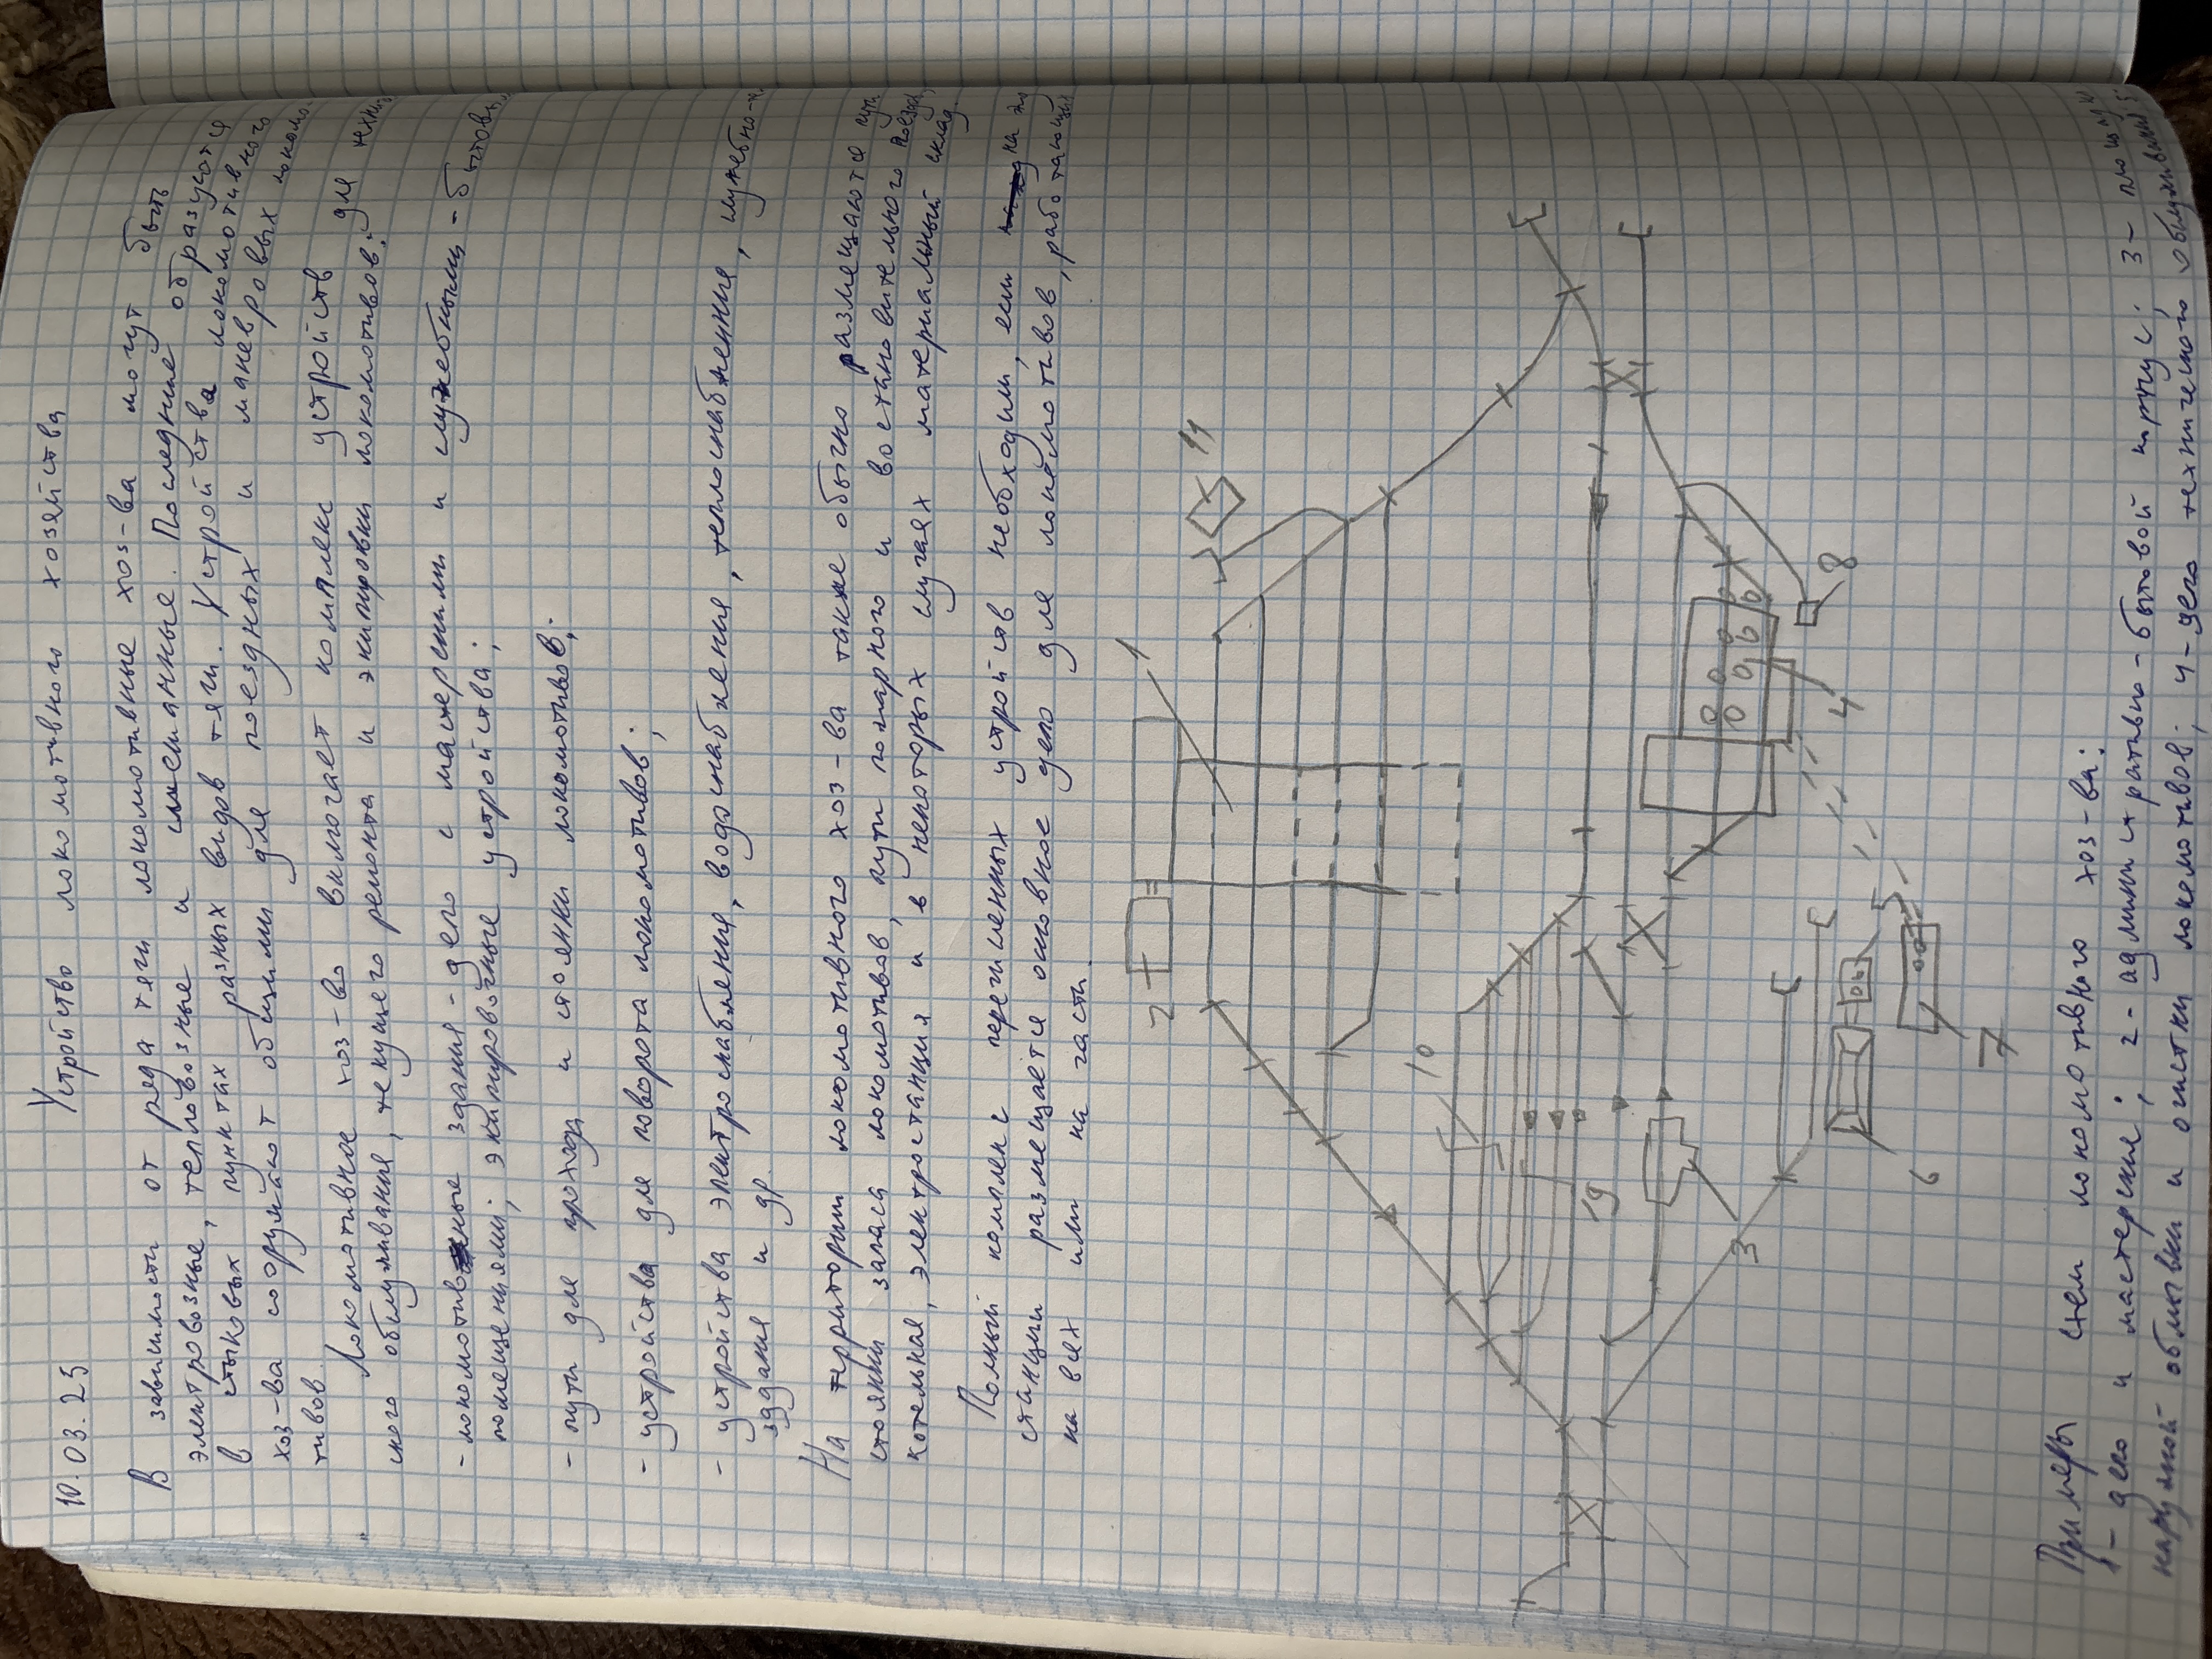 10.03.25 Устройство локомотивного хозяйства
В зависимости от рода тяги локомотивные хоз-ва могут быть
электровозные, тепловозные и смешанные. Последние образуются
в стыковых пунктах разных видов тяги. Устройства локомотивного
хоз-ва сооружают общими для поездных и маневровых локомо-
тивов.
Локомотивное хоз-во включает комплекс устройств для технич
ского обслуживания, текущего ремонта и экипировки локомотивов:
- локомотивные здания - депо с мастерскими и служебными - бытовы
помещениями; экипировочные устройства;
- пути для прохода и стоянки локомотивов;
- устройства для поворота локомотивов;
- устройства электроснабжения, водоснабжения, теплоснабжения, служебно-т.
здания и др.
На территории локомотивного хоз-ва также обычно размещаются пути
стоянки запаса локомотивов, пути пожарного и востановительного поезда,
котельная, электростанция и в некоторых случаях материальный склад.
Полный комплекс перечисленных устройств необходим, если на
станции размещается основное депо для локомотивов, работающих
на всех или на части.
1
2
11
10
19
3
4
8
5
6
7
Примеры схем локомотивного хоз-ва:
1- депо и мастерские; 2- административно-бытовой корпус; 3-
наружной обмывки и очистки локомотивов; 4- депо технического обслуживания